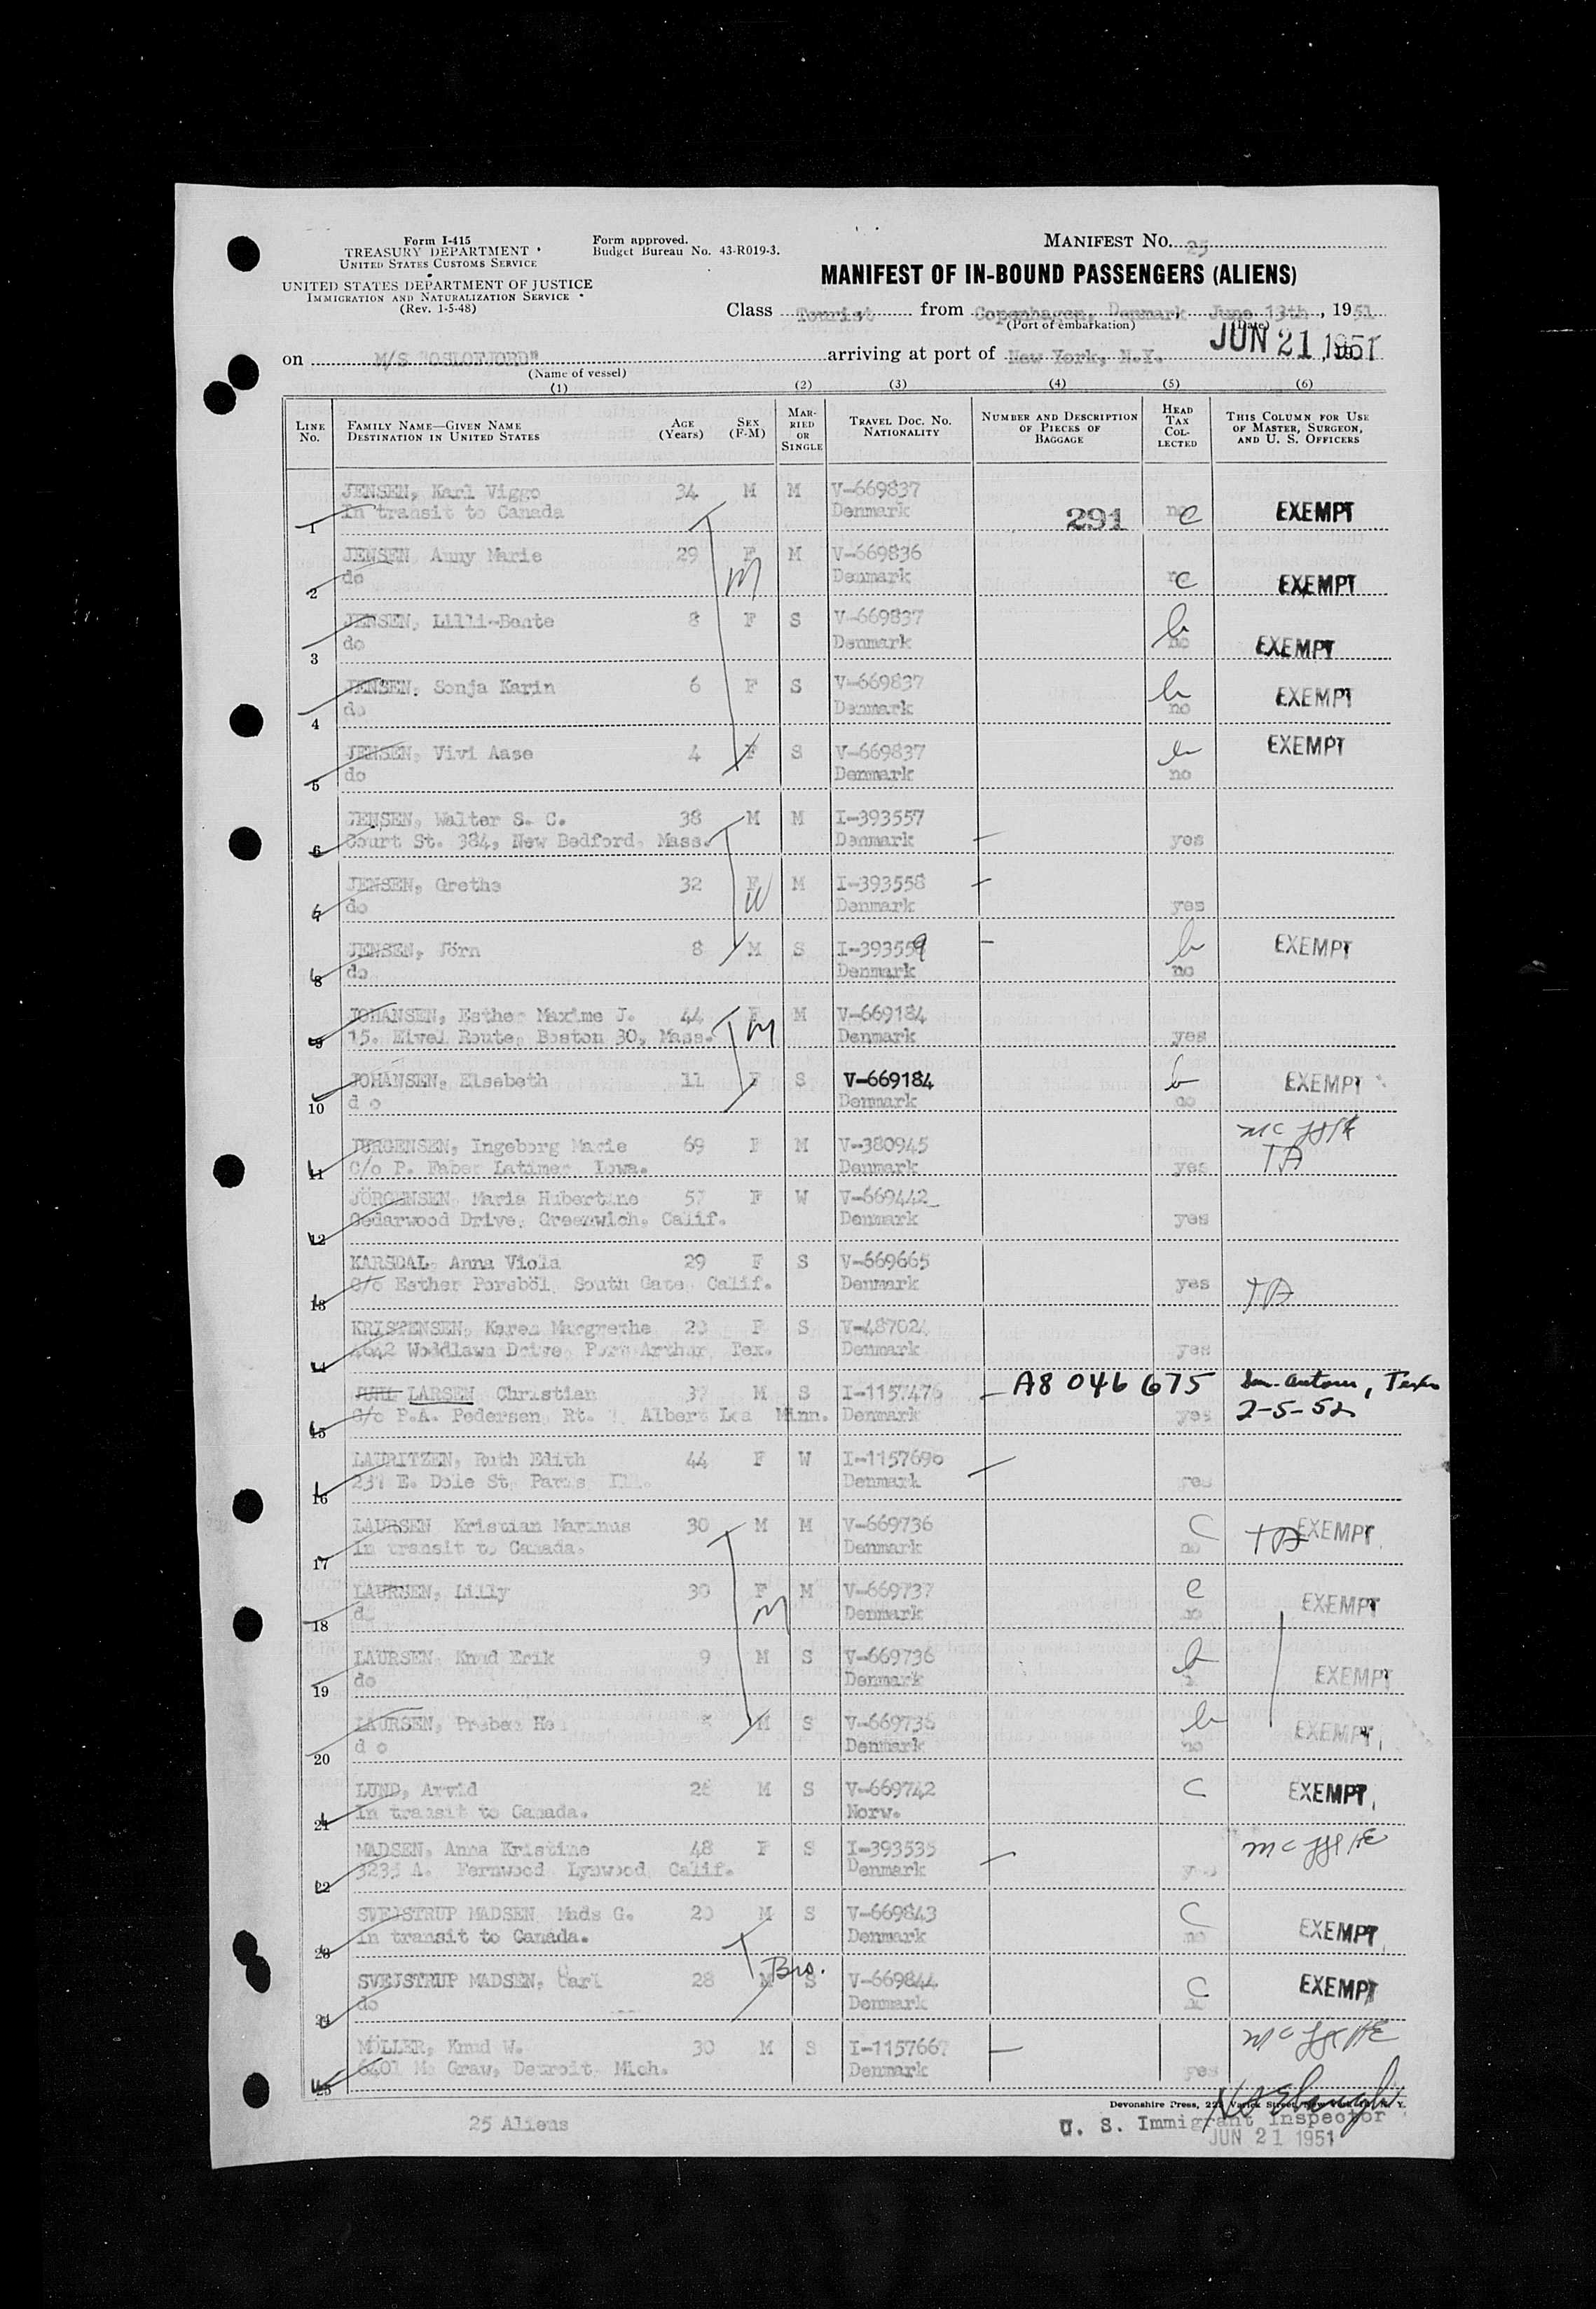 Form I-415
TREASURY DEPARTMENT
UNITED STATES CUSTOMS SERVICE
UNITED STATES DEPARTMENT OF JUSTICE
IMMIGRATION AND NATURALIZATION SERVICE
(Rev. 1-5-48)
Form approved.
Budget Bureau No. 43-R019-3.
MANIFEST No. 25
MANIFEST OF IN-BOUND PASSENGERS (ALIENS)
Class Tourist from Copenhagen, Denmark June 13th, 1951
(Port of embarkation) (Date)
on M/S "OSLOFJORD" arriving at port of New York, N.Y. JUN 21 1951
(Name of vessel)
(1) (2) (3) (4) (5) (6)
LINE No. FAMILY NAME—GIVEN NAME DESTINATION IN UNITED STATES AGE (Years) SEX (F-M) MARRIED OR SINGLE TRAVEL DOC. NO. NATIONALITY NUMBER AND DESCRIPTION OF PIECES OF BAGGAGE HEAD TAX COLLECTED THIS COLUMN FOR USE OF MASTER, SURGEON, AND U. S. OFFICERS
JENSEN, Karl Viggo 34 M M V-669837
1 In transit to Canada Denmark 291 no c EXEMPT
JENSEN Anny Marie 29 F M V-669836
2 do M Denmark no c EXEMPT
JENSEN, Lilli-Bente 8 F S V-669837 b
3 do Denmark no EXEMPT
JENSEN, Sonja Karin 6 F S V-669837 b EXEMPT
4 do Denmark no
JENSEN, Vivi Aase 4 F S V-669837 b EXEMPT
5 do Denmark no
JENSEN, Walter S. C. 38 M M I-393557
6 Court St. 384, New Bedford, Mass. Denmark yes
JENSEN, Grethe 32 F M I-393558
7 do W Denmark yes
JENSEN, Jörn 8 M S I-393559 b EXEMPT
8 do Denmark no
JOHANSEN, Esther Maxime J. 44 F M V-669184
9 15. Eivel Route, Boston 30, Mass. M Denmark yes
JOHANSEN, Elsebeth 11 F S V-669184 b EXEMPT
10 d o Denmark no
JURGENSEN, Ingeborg Marie 69 F M V-380945
11 C/o P. Faber Latimer Iowa. Denmark yes TA
JÖRGENSEN Maria Hubertine 57 F W V-669442
12 Cedarwood Drive, Greenwich, Calif. Denmark yes
KARSDAL, Anna Viola 29 F S V-669665
13 C/o Esther Poreböl, South Gate, Calif. Denmark yes TA
KRISTENSEN, Karen Margrethe 20 F S V-48702
14 4642 Woddlawn Drive Port Arthur, Tex. Denmark yes
JUHL LARSEN Christian 37 M S I-1157476 A8 046 675 San Antonio, Texas
15 C/o P.A. Pedersen, Rt. Albert Lea Minn. Denmark yes 2-5-52
LAURITZEN, Ruth Edith 44 F W I-1157690
16 237 E. Dole St, Paris Ill. Denmark yes
LAURSEN Kristian Marinus 30 M M V-669736 c EXEMPT
17 In transit to Canada. Denmark no TA
LAURSEN, Lilly 30 F M V-669737 c EXEMPT
18 do M Denmark no
LAURSEN, Knud Erik 9 M S V-669736 b EXEMPT
19 do Denmark
LAURSEN, Preben M S V-669736 b EXEMPT
20 d o Denmark no
LUND, Arvid 26 M S V-669742 c EXEMPT
21 In transit to Canada. Norw.
MADSEN, Anna Kristine 48 F S I-393535
22 3235 A. Fernwood Lynwood, Calif. Denmark yes
SVEJSTRUP MADSEN, Mads G. 20 M S V-669843 c
23 In transit to Canada. Denmark no EXEMPT
SVEJSTRUP MADSEN, Carl 28 M Bro. S V-669844 c EXEMPT
24 do Denmark no
MÖLLER, Knud W. 30 M S I-1157667
25 6401 Mc Graw, Detroit Mich. Denmark yes
Devonshire Press, 225 Varick Street, New York, N. Y.
25 Aliens
U. S. Immigrant Inspector
JUN 21 1951